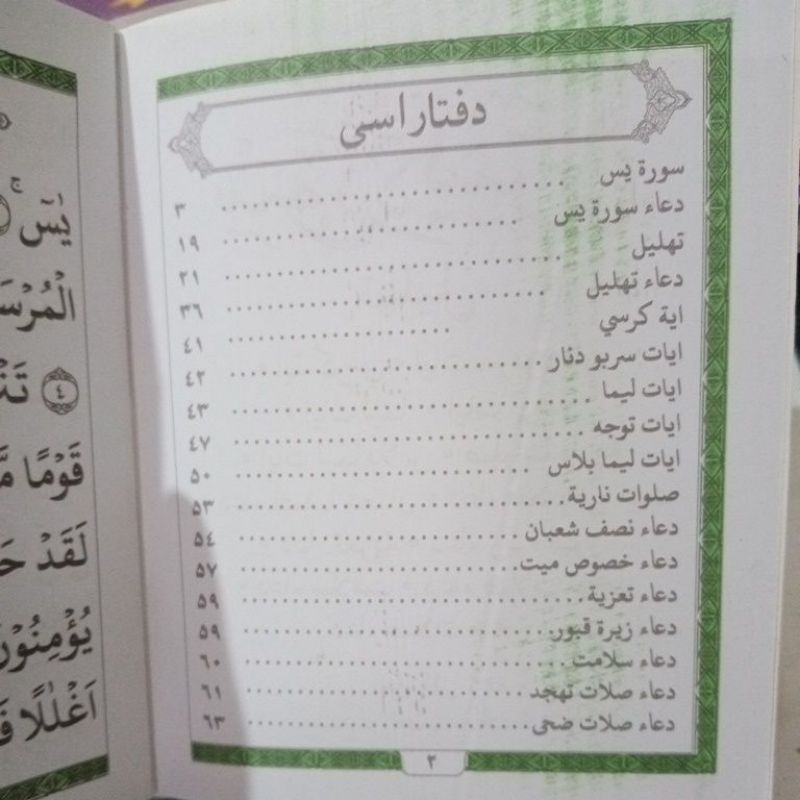 دفتار اسى
سورة يس .............................. ٣
دعاء سورة يس .............................. ١٩
تهليل .............................. ٢١
دعاء تهليل .............................. ٣٦
اية كرسي .............................. ٤١
ايات سربو دنار .............................. ٤٢
ايات ليما .............................. ٤٣
ايات توجه .............................. ٤٧
ايات ليما بلاس .............................. ٥٠
صلوات نارية .............................. ٥٣
دعاء نصف شعبان .............................. ٥٤
دعاء خصوص ميت .............................. ٥٧
دعاء تعزية .............................. ٥٩
دعاء زيرة قبور .............................. ٥٩
دعاء سلامت .............................. ٦٠
دعاء صلات تهجد .............................. ٦١
دعاء صلات ضحى .............................. ٦٣
٢
يٰسۤ ۚ
٤
قَوْمًا
لَقَدْ
اَغْلٰلًا